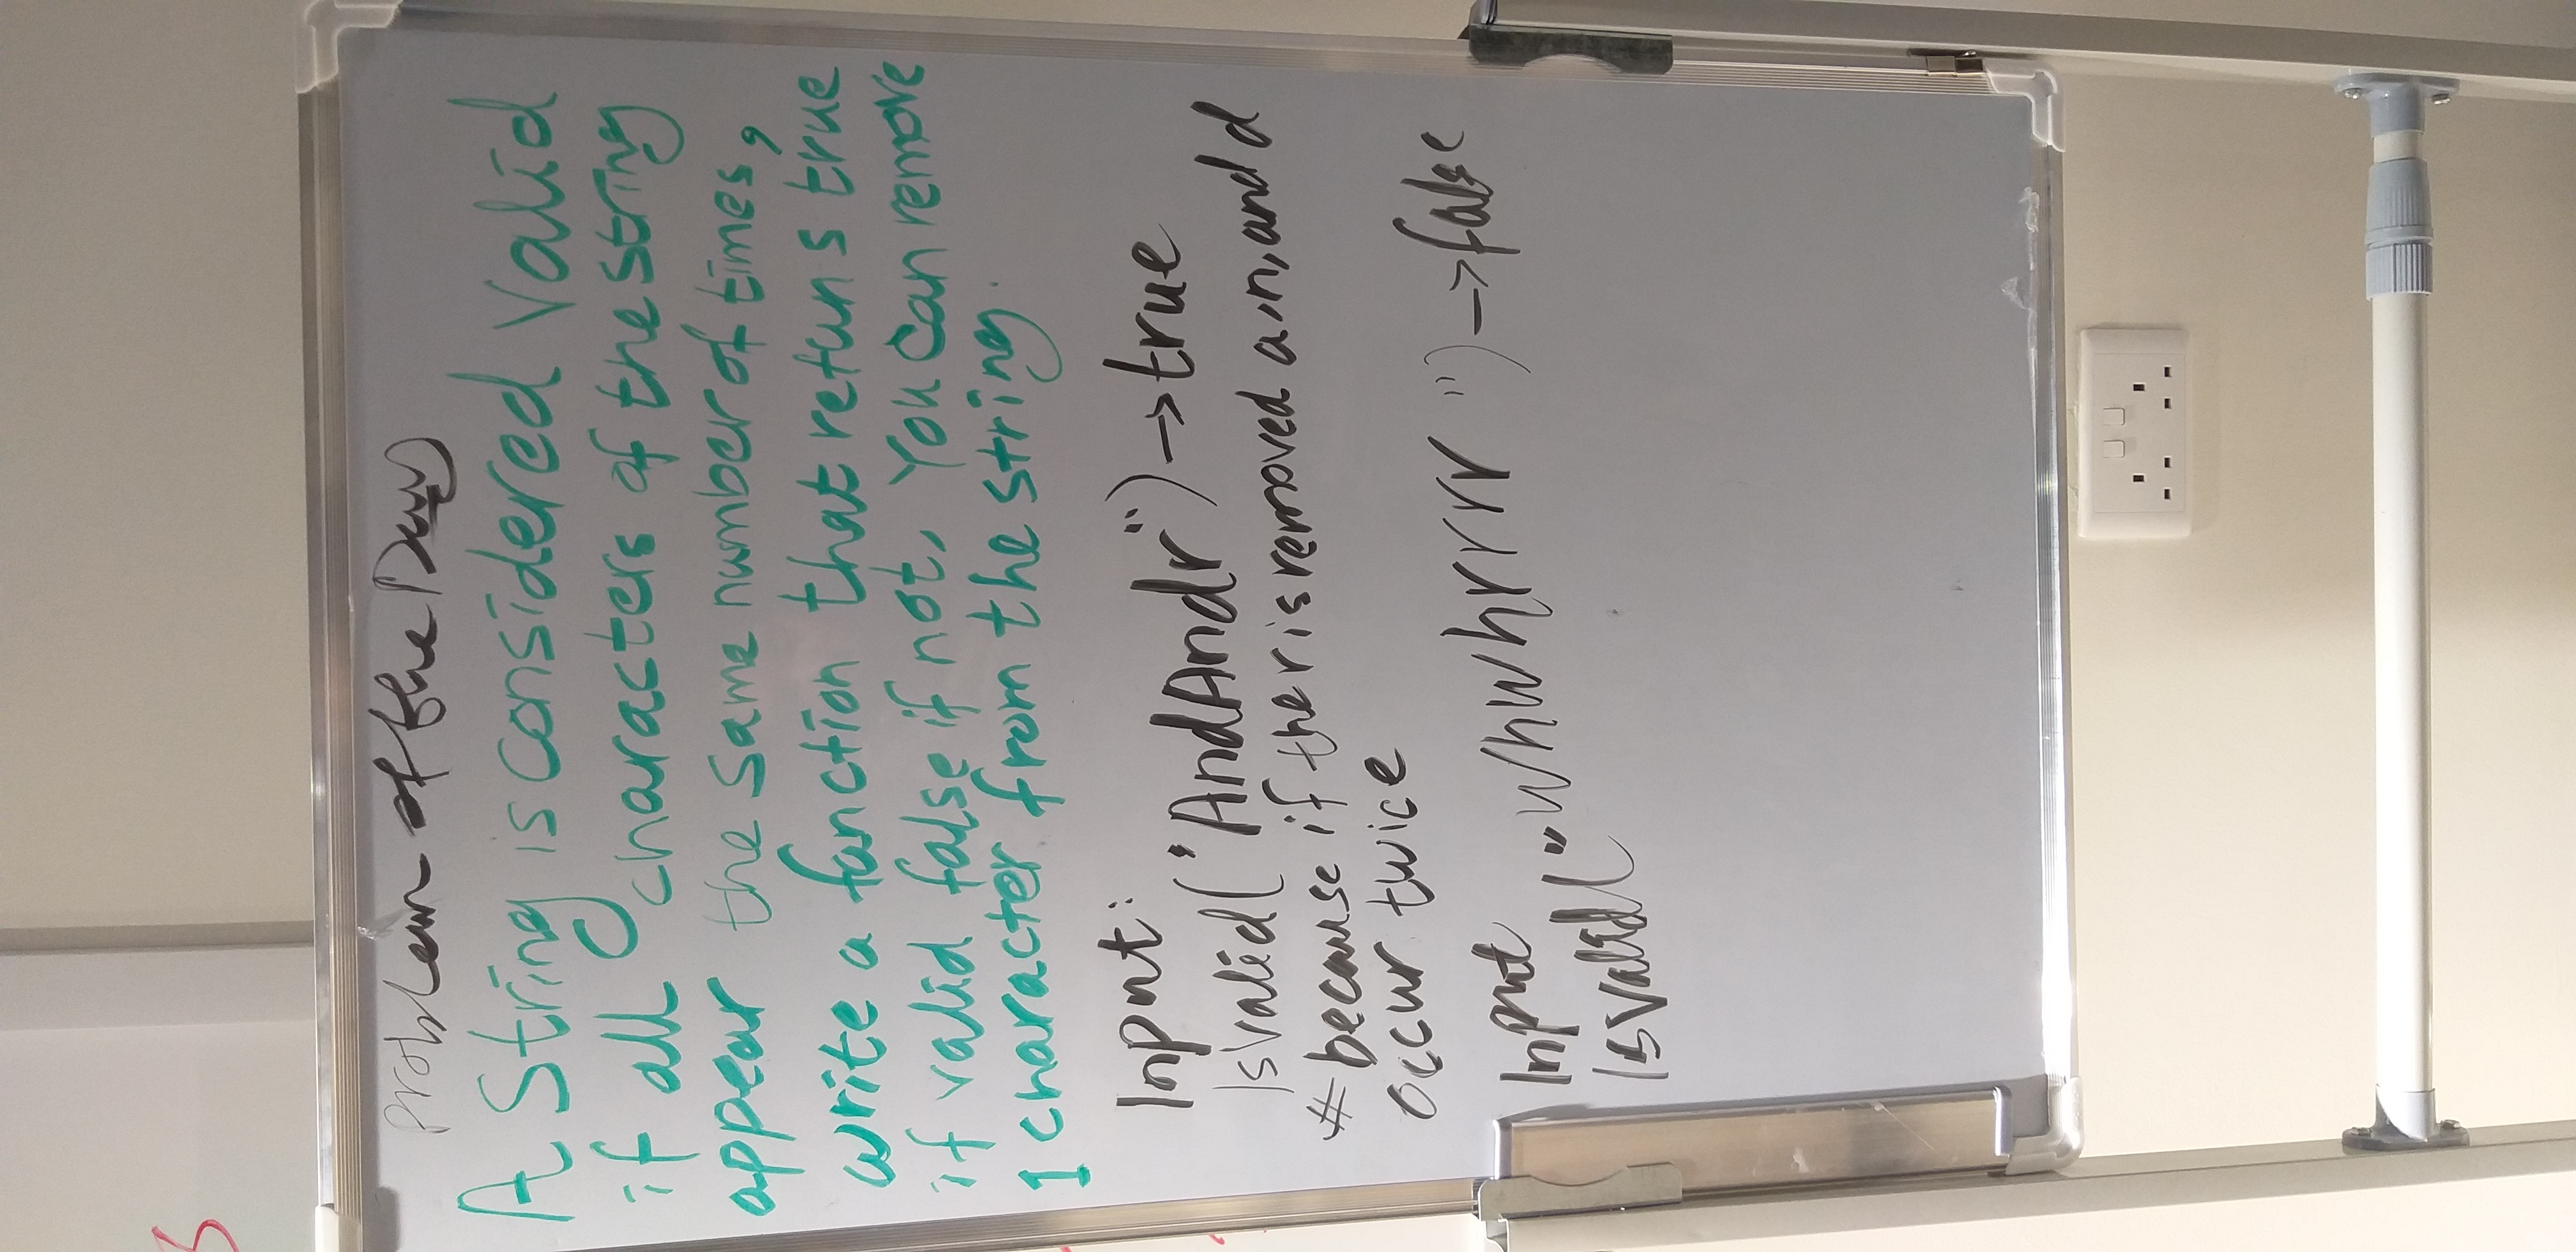 Problem of the Day
A String is considered Valid
if all characters of the string
appear the same number of times,
write a fanction that retuns true
if valid false if not. You can remove
1 character from the string.
Input:
IsValid("AndAndr") -> true
# because if the r is removed a,n,and d
occur twice
Input
IsValid("whwhrrrr") -> false